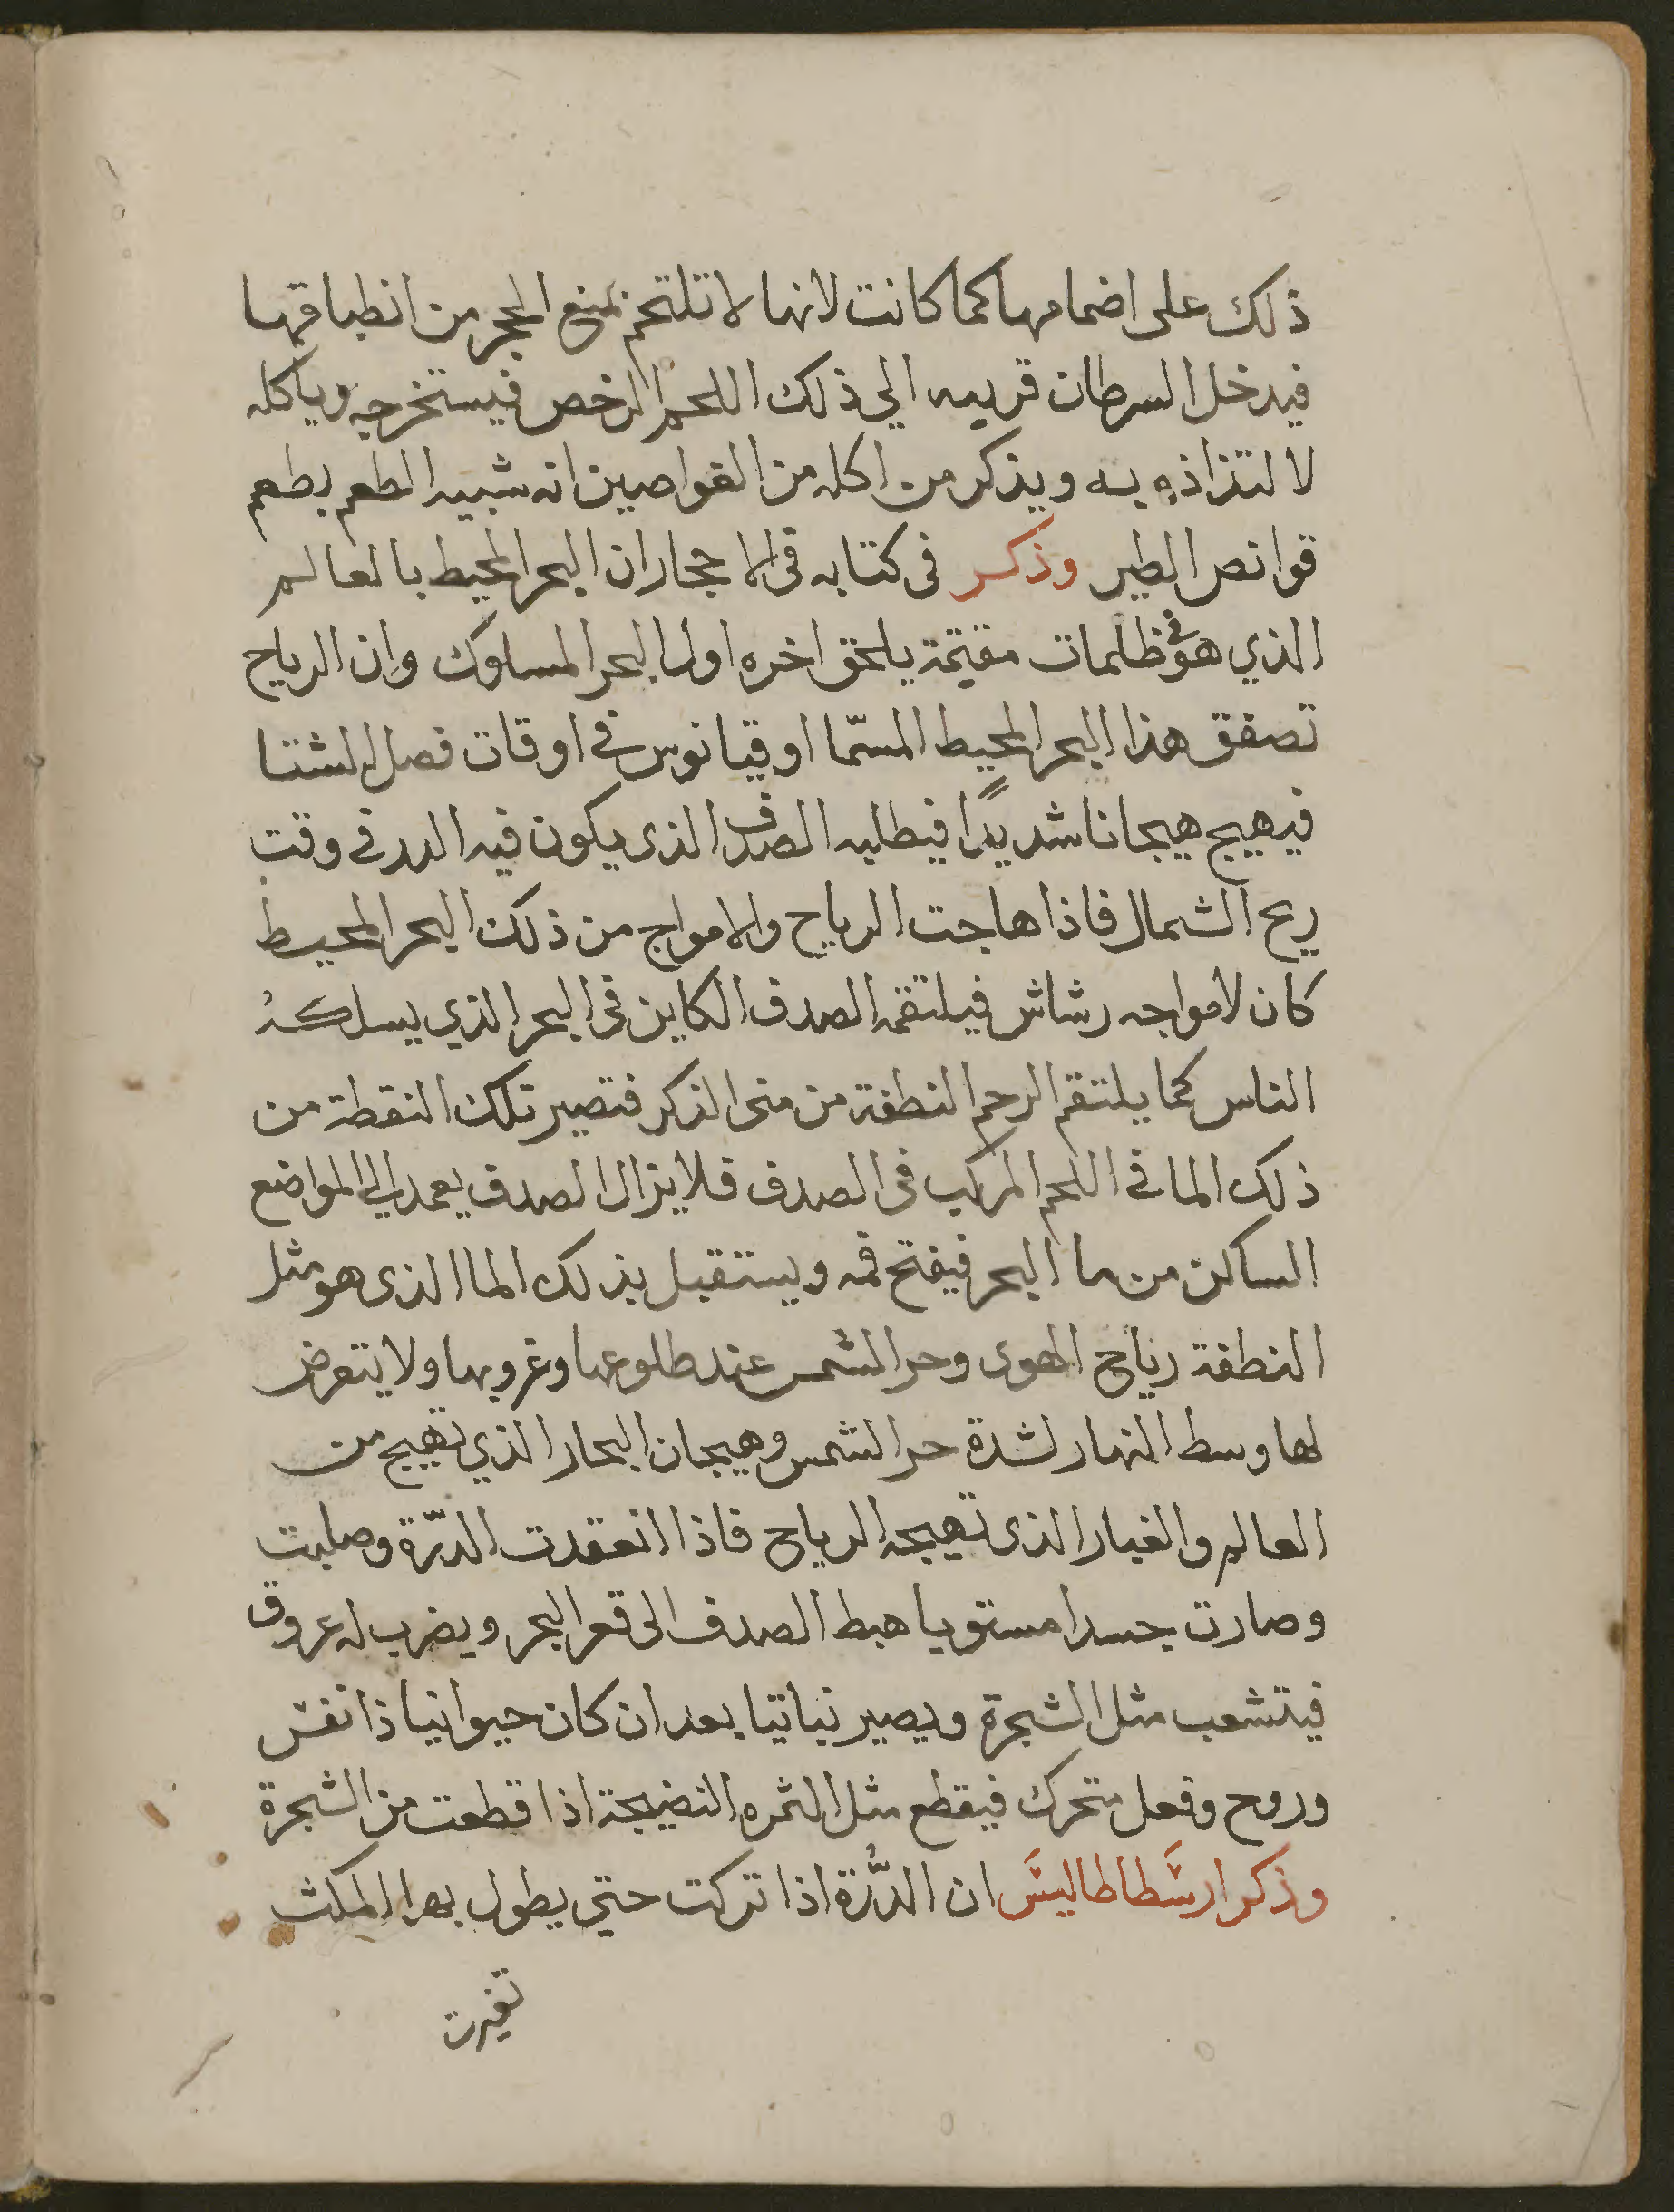 ذلك على اضمامها كما كانت لانها لا تلتحم بمنع الحجر من انطباقها
فيدخل السرطان قريبه الي ذلك اللحم الرخص فيستخرجه وياكله
لا لتذاذه به ويذكر من اكله من الغواصين انه شبيه الطعم بطعم
قوانص الطير وذكر فى كتابه فى الاحجار ان البحر المحيط بالعالم
الذي هو فى ظلمات مقيمة يلحق اخره اول البحر المسلوك وان الرياح
تصفق هذا البحر المحيط المسمّا اوقيانوس في اوقات فصل الشتا
فيهيج هيجانا شديدًا فيطلبه الصدف الذى يكون فيه الدر في وقت
ريح الشمال فاذا هاجت الرياح والامواج من ذلك البحر المحيط
كان لامواجه رشاش فيلتقمه الصدف الكاين فى البحر الذي يسلكهُ
الناس كما يلتقم الرحم النطفة من منى الذكر فتصير تلك النقطة من
ذلك الما في اللحم المركب فى الصدف فلا يزال الصدف يعمد الى المواضع
الساكن من ما البحر فيفتح فمه ويستقبل بذلك الما الذى هو مثل
النطفة رياح الهوى وحر الشمس عند طلوعها وغروبها ولا يتعرض
لها وسط النهار لشدة حر الشمس وهيجان البحار الذي تهيج من
العالم والغبار الذى تهيجه الرياح فاذا انعقدت الدرّة وصلبت
وصارت جسدا مستويا هبط الصدف الى قعر البحر ويضرب له عروق
فيتشعب مثل الشجرة ويصير نباتيا بعد ان كان حيوانيا ذا نفس
وروح وفعل متحرك فيقطع مثل الثمره النضيجة اذا قطعت من الشجرة
وذكر ارسطاطاليس ان الدُّرة اذا تركت حتي يطول بها المكث
تغيرت